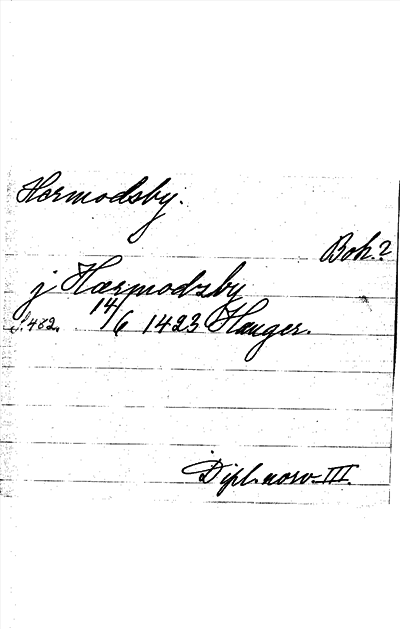 Hermodsby.
Boh.?
j Hærmodzby
S. 482. 14/6 1423 Hauger.
Dipl. norv. III.